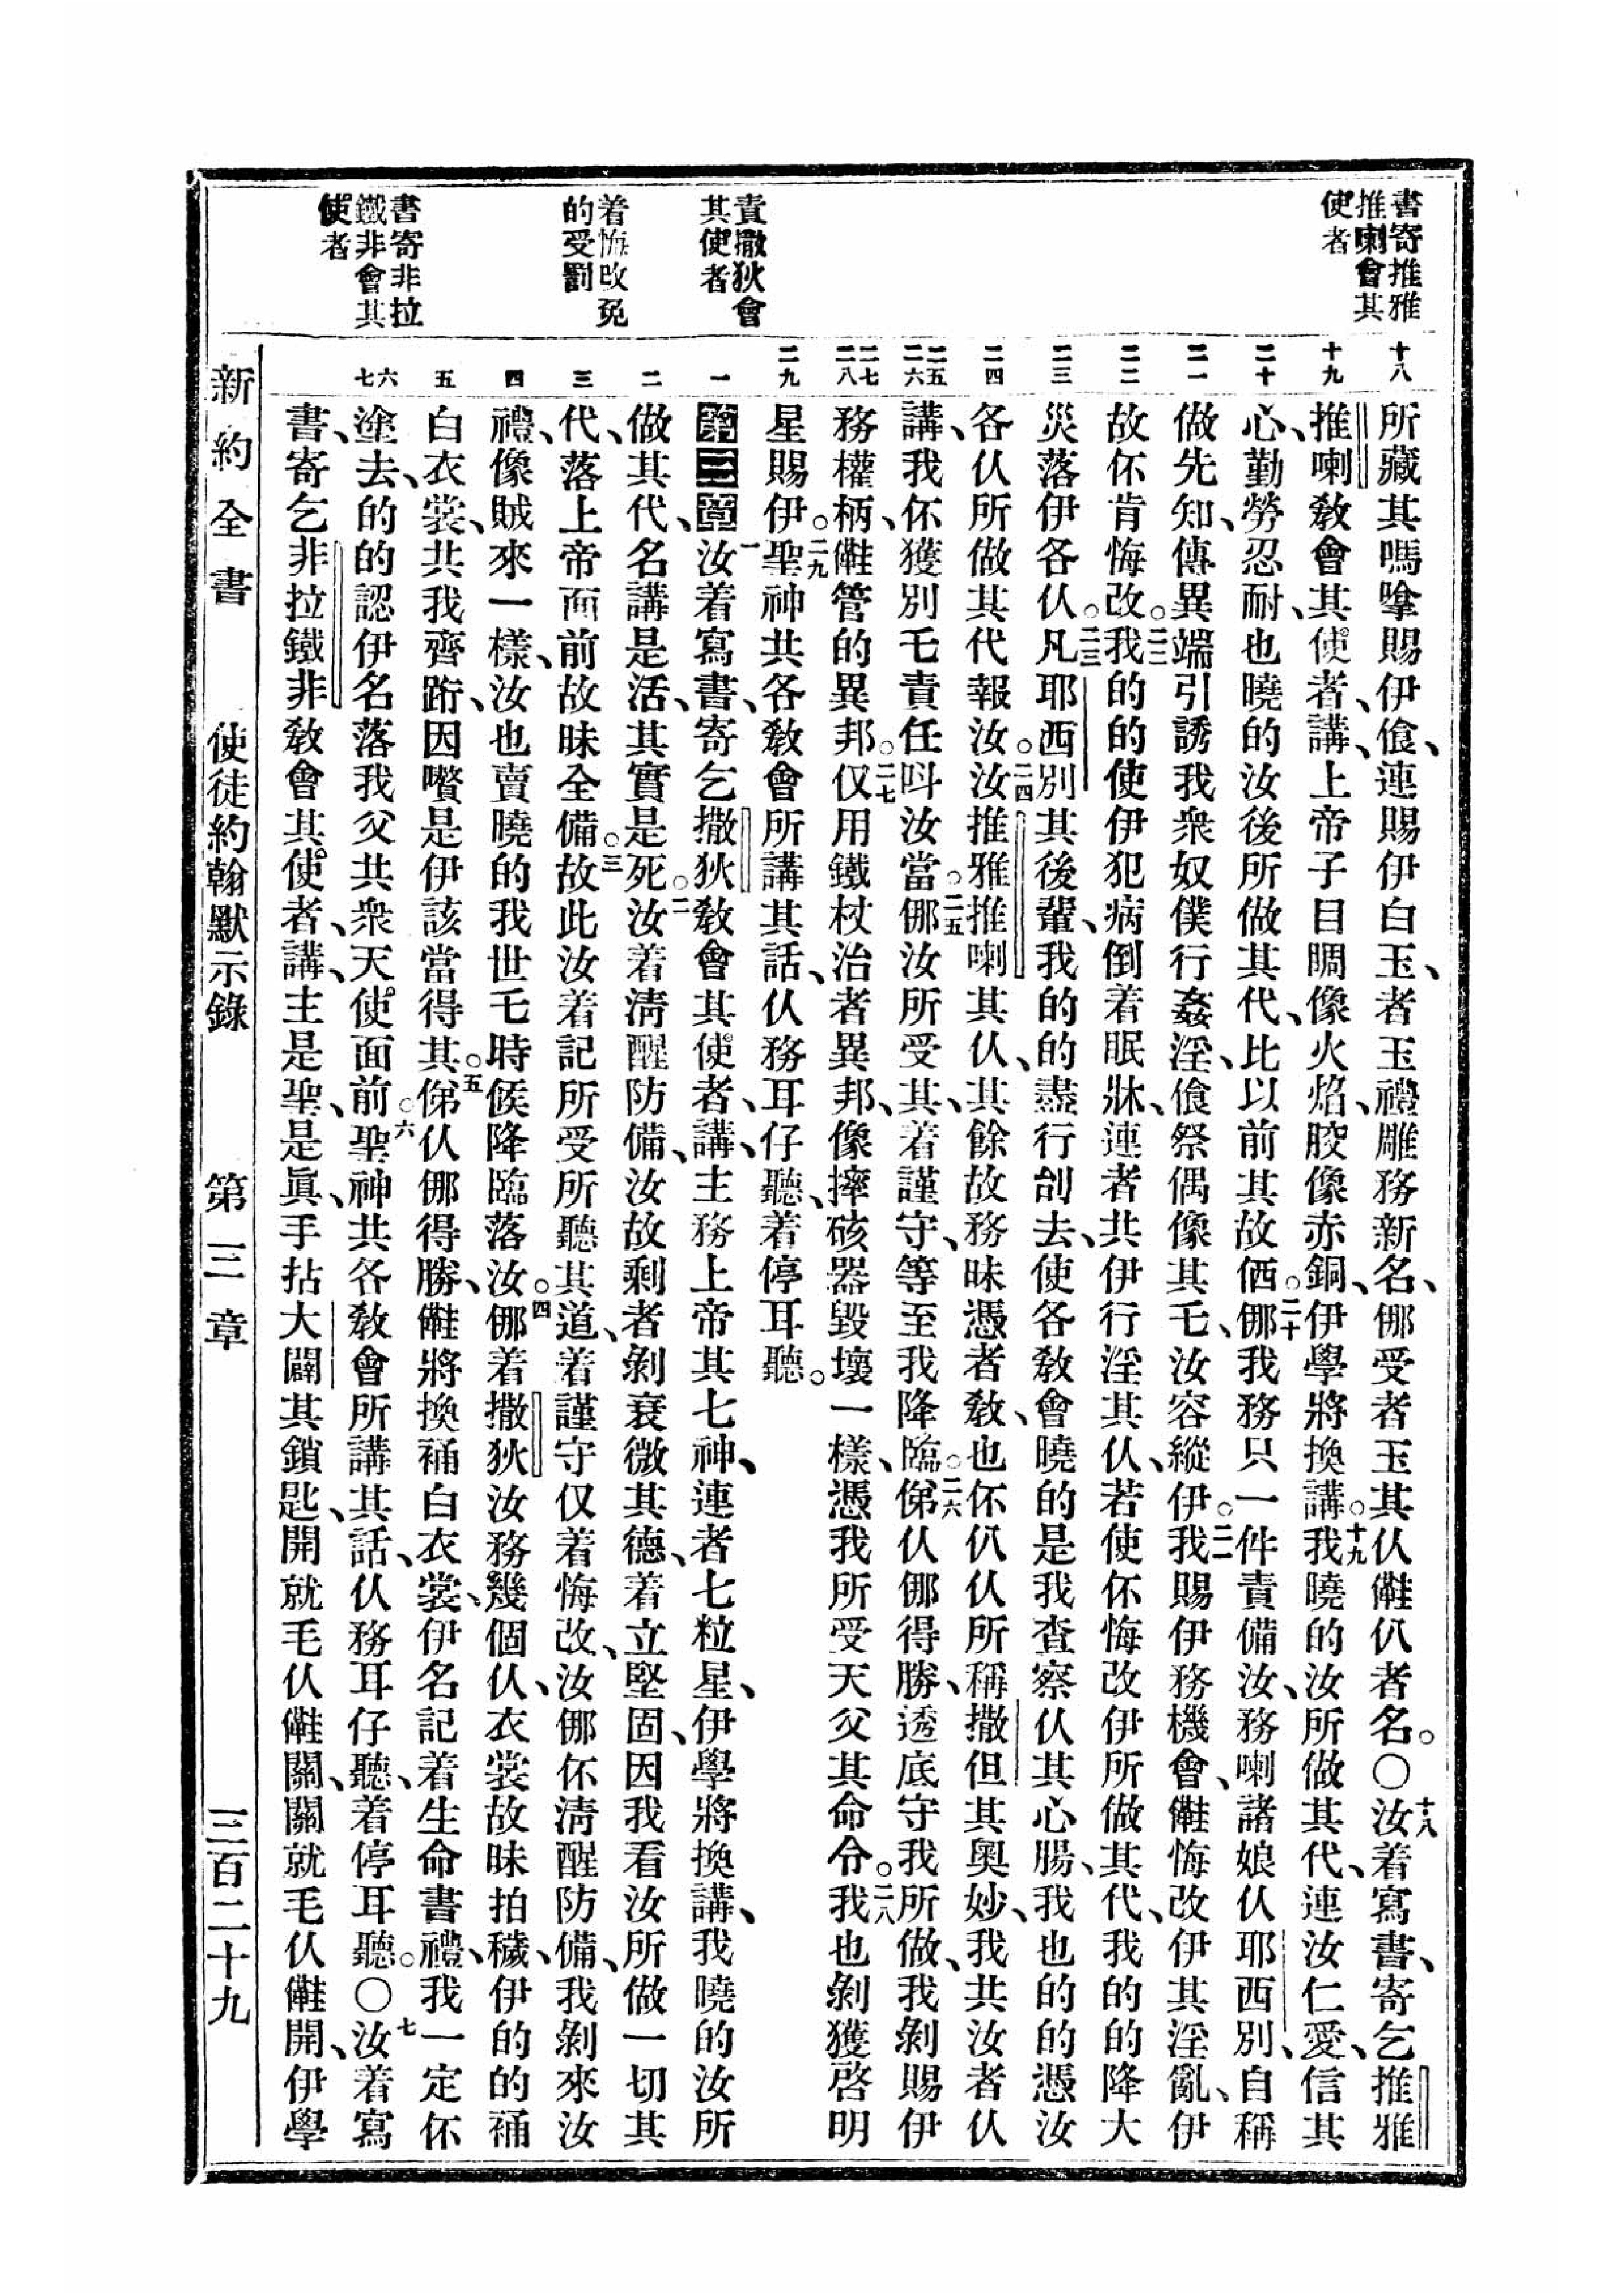 書寄推雅
推喇會其
使者
責撒狄會
其使者
着悔改免
的受罰
書寄非拉
鐵非會其
使者
十八
十九
二十
二一
二二
二三
二四
二五
二六
二七
二八
二九
一
二
三
四
五
六
七
所藏其嗎嗱賜伊飡、連賜伊白玉、者玉禮雕務新名、哪受者玉其仈𣍐仈者名。○十八汝着寫書、寄乞推雅
推喇教會其使者、講、上帝子目睭像火焰、骹像赤銅、伊學將換講。十九我曉的汝所做其代、連汝仁愛、信其
心、勤勞、忍耐、也曉的汝後所做其代、比以前其故価。二十哪我務只一件責備汝、務喇諸娘仈耶西別、自稱
做先知、傳異端引誘我衆奴僕行姦淫、飡祭偶像其乇、汝容縱伊。二一我賜伊務機會、𣍐悔改伊其淫亂、伊
故伓肯悔改。二二我的的使伊犯病倒着眠牀、連者共伊行淫其仈、若使伓悔改伊所做其代、我的的降大
災落伊各仈。二三凡耶西別其後輩、我的的盡行刣去、使各教會曉的是我查察仈其心腸、我也的的憑汝
各仈所做其代報汝。二四汝推雅推喇其仈、其餘故務昧憑者教、也伓仈仈所稱撒但其奧妙、我共汝者仈
講、我伓獲別乇責任呌汝當。二五哪汝所受其、着謹守、等至我降臨。二六俤仈哪得勝、透底守我所做、我剝賜伊
務權柄、𣍐管的異邦。二七仅用鐵杖治者異邦、像摔硋器毀壞一樣、憑我所受天父其命令。二八我也剝獲啓明
星賜伊。二九聖神共各教會所講其話、仈務耳仔聽、着停耳聽。
第三章一汝着寫書、寄乞撒狄教會其使者、講、主務上帝其七神、連者七粒星、伊學將換講、我曉的汝所
做其代、名講是活、其實是死。二汝着淸醒防備、汝故剩者剝衰微其德、着立堅固、因我看汝所做一切其
代、落上帝面前故昧全備。三故此汝着記所受所聽其道、着謹守仅着悔改、汝哪伓淸醒防備、我剝來汝
禮、像賊來一樣、汝也賣曉的我世乇時候降臨落汝。四哪着撒狄汝務幾個仈、衣裳故昧拍穢、伊的的䘄
白衣裳、共我齊跘、因嚽是伊該當得其。五俤仈哪得勝、𣍐將換䘄白衣裳、伊名記着生命書禮、我一定伓
塗去、的的認伊名落我父共衆天使面前。六聖神共各教會所講其話、仈務耳仔聽、着停耳聽。○七汝着寫
書、寄乞非拉鐵非教會其使者、講、主是聖、是眞、手拈大闢其鎖匙、開就毛仈𣍐關、關就毛仈𣍐開、伊學
新約全書　使徒約翰默示錄　第三章　三百二十九